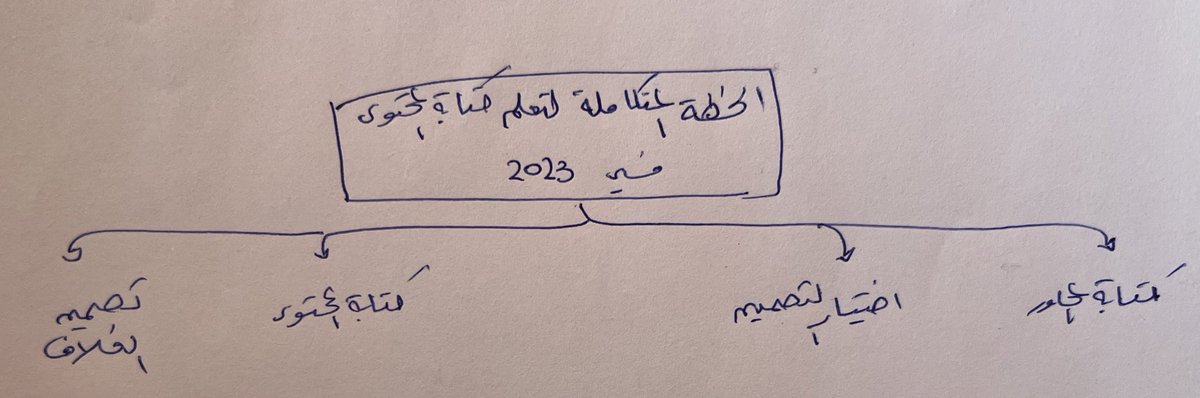 الخطة المتكاملة لتعلم كتابة المحتوى
في 2023
كتابة المحاور
اختيار التصميم
كتابة المحتوى
تصميم
الغلاف